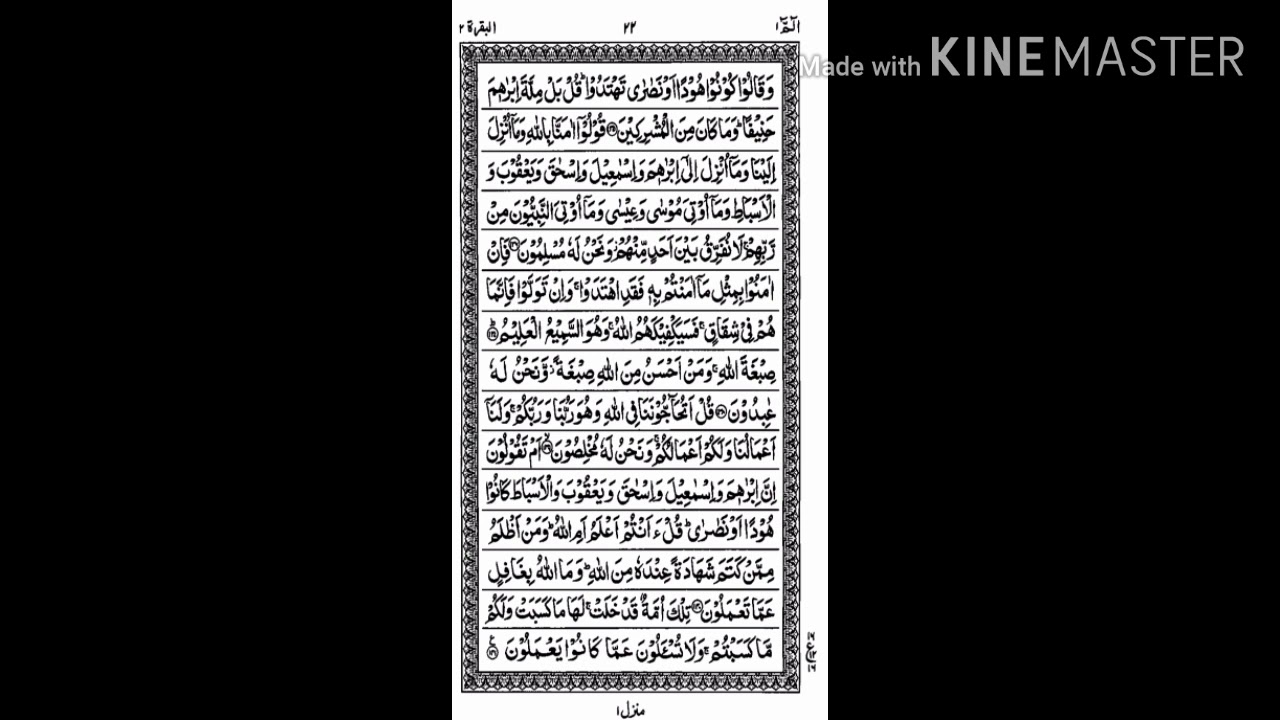 الٓمّٓ ۱ ۲۲ البقرة ۲
Made with KINEMASTER
وَقَالُوْا كُوْنُوْا هُوْدًا اَوْ نَصٰرٰى تَهْتَدُوْا ؕ قُلْ بَلْ مِلَّةَ اِبْرٰهٖمَ
حَنِيْفًا ؕ وَمَا كَانَ مِنَ الْمُشْرِكِيْنَ ۝ قُوْلُوْٓا اٰمَنَّا بِاللّٰهِ وَمَآ اُنْزِلَ
اِلَيْنَا وَمَآ اُنْزِلَ اِلٰٓى اِبْرٰهٖمَ وَاِسْمٰعِيْلَ وَاِسْحٰقَ وَيَعْقُوْبَ وَ
الْاَسْبَاطِ وَمَآ اُوْتِيَ مُوْسٰى وَعِيْسٰى وَمَآ اُوْتِيَ النَّبِيُّوْنَ مِنْ
رَّبِّهِمْ ۚ لَا نُفَرِّقُ بَيْنَ اَحَدٍ مِّنْهُمْ ۖ وَنَحْنُ لَهٗ مُسْلِمُوْنَ ۝ فَاِنْ
اٰمَنُوْا بِمِثْلِ مَآ اٰمَنْتُمْ بِهٖ فَقَدِ اهْتَدَوْا ۚ وَاِنْ تَوَلَّوْا فَاِنَّمَا
هُمْ فِيْ شِقَاقٍ ۚ فَسَيَكْفِيْكَهُمُ اللّٰهُ ۚ وَهُوَ السَّمِيْعُ الْعَلِيْمُ ۝
صِبْغَةَ اللّٰهِ ۚ وَمَنْ اَحْسَنُ مِنَ اللّٰهِ صِبْغَةً ۖ وَّنَحْنُ لَهٗ
عٰبِدُوْنَ ۝ قُلْ اَتُحَآجُّوْنَنَا فِي اللّٰهِ وَهُوَ رَبُّنَا وَرَبُّكُمْ ۚ وَلَنَآ
اَعْمَالُنَا وَلَكُمْ اَعْمَالُكُمْ ۚ وَنَحْنُ لَهٗ مُخْلِصُوْنَ ۝ اَمْ تَقُوْلُوْنَ
اِنَّ اِبْرٰهٖمَ وَاِسْمٰعِيْلَ وَاِسْحٰقَ وَيَعْقُوْبَ وَالْاَسْبَاطَ كَانُوْا
هُوْدًا اَوْ نَصٰرٰى ؕ قُلْ ءَاَنْتُمْ اَعْلَمُ اَمِ اللّٰهُ ؕ وَمَنْ اَظْلَمُ
مِمَّنْ كَتَمَ شَهَادَةً عِنْدَهٗ مِنَ اللّٰهِ ؕ وَمَا اللّٰهُ بِغَافِلٍ
عَمَّا تَعْمَلُوْنَ ۝ تِلْكَ اُمَّةٌ قَدْ خَلَتْ ۚ لَهَا مَا كَسَبَتْ وَلَكُمْ
مَّا كَسَبْتُمْ ۚ وَلَا تُسْـَٔلُوْنَ عَمَّا كَانُوْا يَعْمَلُوْنَ ۝
منزل ۱